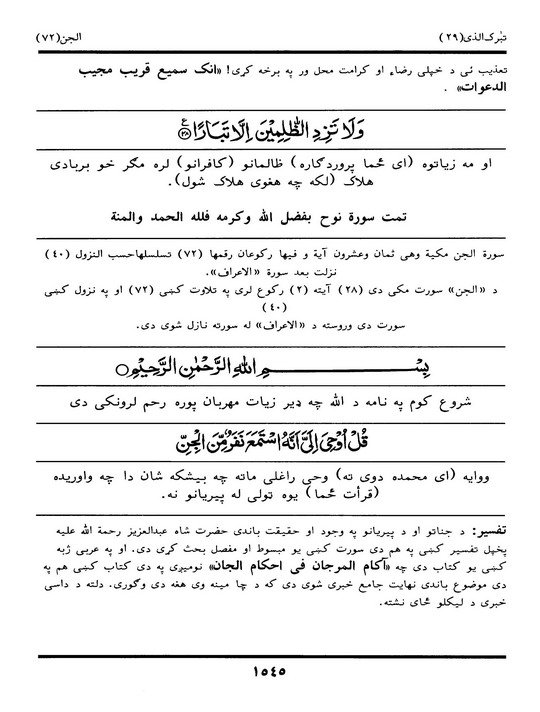 تبرک الذی (۲۹) الجن (۷۲)
تعذیب ئی د خپلی رضاء او کرامت محل ور په برخه کړی! «انک سمیع قریب مجیب
الدعوات» .
وَلَا تَزِدِ الظّٰلِمِیْنَ اِلَّا تَبَارًا ۲۸
او مه زیاتوه (ای ځما پروردګاره) ظالمانو (کافرانو) لره مګر خو بربادی
هلاک (لکه چه هغوی هلاک شول).
تمت سورة نوح بفضل الله وکرمه فلله الحمد والمنة
سورة الجن مکیة وهی ثمان وعشرون آیة و فیها رکوعان رقمها (۷۲) تسلسلهاحسب النزول (۴۰)
نزلت بعد سورة «الاعراف».
د «الجن» سورت مکی دی (۲۸) آیته (۲) رکوع لری په تلاوت کښی (۷۲) او په نزول کښی
(۴۰)
سورت دی وروسته د «الاعراف» له سورته نازل شوی دی.
بِسْمِ اللهِ الرَّحْمٰنِ الرَّحِیْمِ
شروع کوم په نامه د الله چه ډیر زیات مهربان پوره رحم لرونکی دی
قُلْ اُوْحِیَ اِلَیَّ اَنَّهُ اسْتَمَعَ نَفَرٌ مِّنَ الْجِنِّ
ووایه (ای محمده دوی ته) وحی راغلی ماته چه بیشکه شان دا چه واوریده
(قرأت ځما) یوه تولی له پیریانو نه.
تفسیر: د جناتو او د پیریانو په وجود او حقیقت باندی حضرت شاه عبدالعزیز رحمة الله علیه
پخپل تفسیر کښی په هم دی سورت کښی یو مبسوط او مفصل بحث کړی دی. او په عربی ژبه
کښی یو کتاب دی چه «آکام المرجان فی احکام الجان» نومیږی په دی کتاب کښی هم په
دی موضوع باندی نهایت جامع خبری شوی دی که د چا مینه وی هغه دی وګوری. دلته د داسی
خبری د لیکلو ځای نشته.
۱۵۴۵